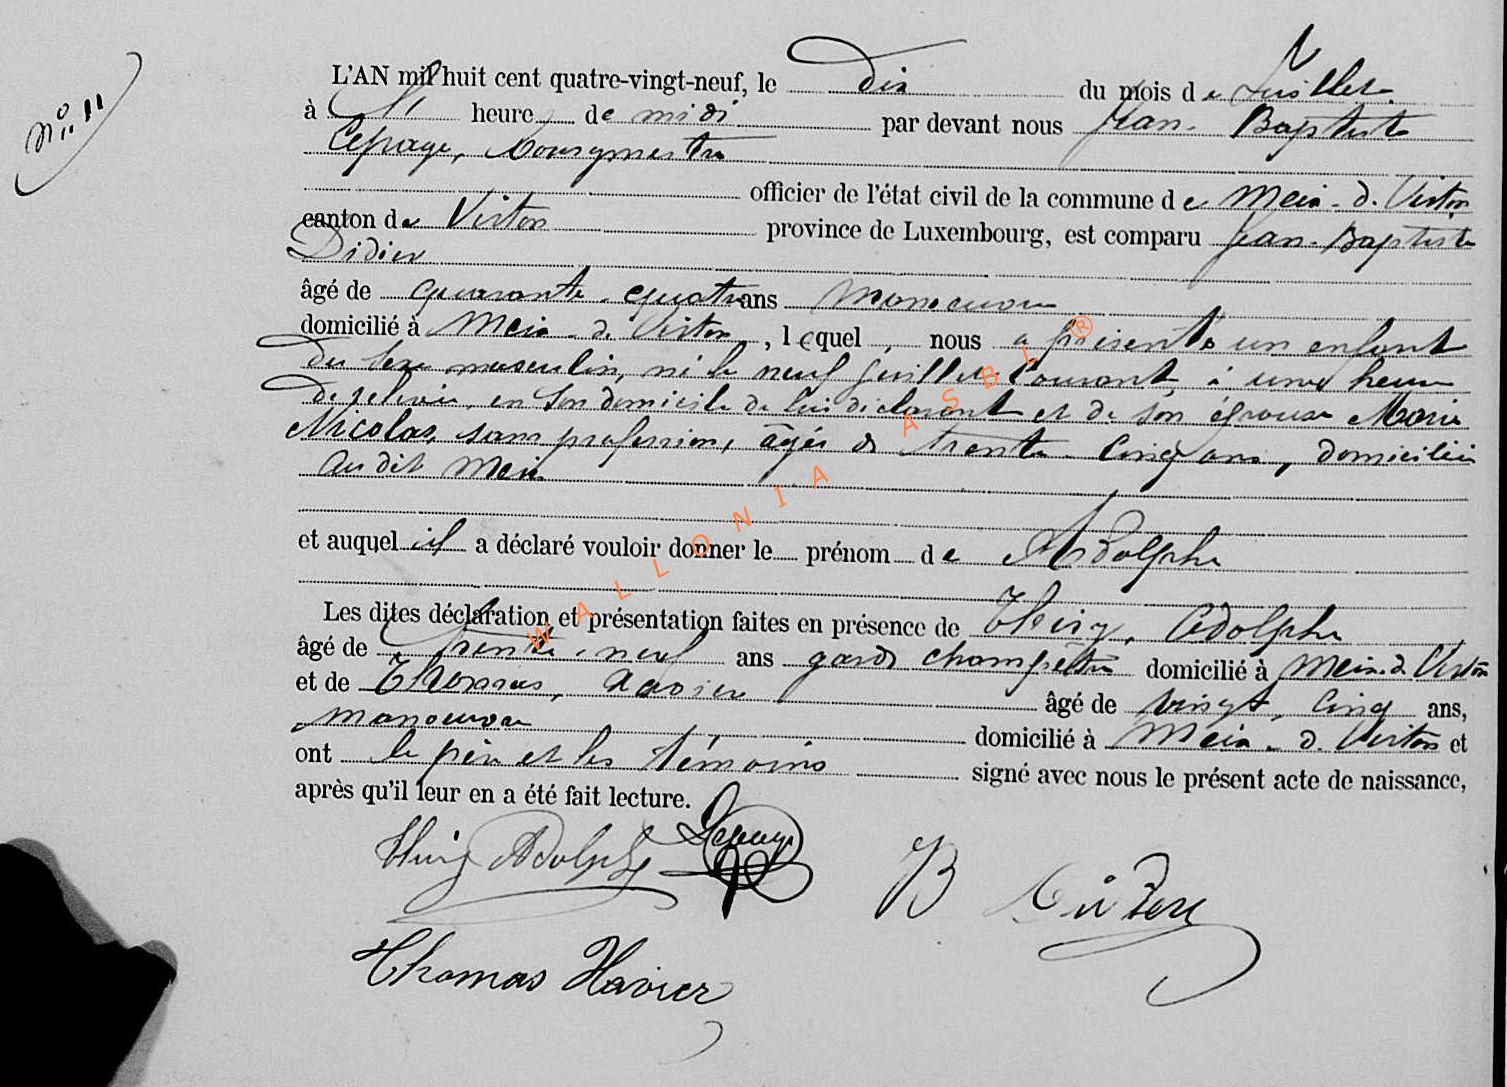 N° 11
L'AN mil huit cent quatre-vingt-neuf, le dix du mois de Juillet
à heure de midi par devant nous Jean-Baptiste
Lepage, Bourgmestre
officier de l'état civil de la commune de Meix-d. Virton
canton de Virton province de Luxembourg, est comparu Jean-Baptiste
Didier
âgé de quarante-quatre ans manoeuvre
domicilié à Meix-d. Virton, lequel nous a présenté un enfant
du sexe masculin, né le neuf juillet courant, à une heure
de relevée, en son domicile de lui déclarant et de son épouse Marie
Nicolas, sans profession, âgée de trente-cinq ans, domiciliée
au dit Meix
et auquel il a déclaré vouloir donner le prénom de Adolphe
Les dites déclaration et présentation faites en présence de Thiry, Adolphe
âgé de trente-neuf ans garde champêtre domicilié à Meix-d. Virton
et de Thomas, Xavier âgé de vingt-cinq ans,
manoeuvre domicilié à Meix-d. Virton et
ont le père et les témoins signé avec nous le présent acte de naissance,
après qu'il leur en a été fait lecture.
Thiry Adolphe Lepage JB Didier
Thomas Xavier
WALLONIA ASBL ®